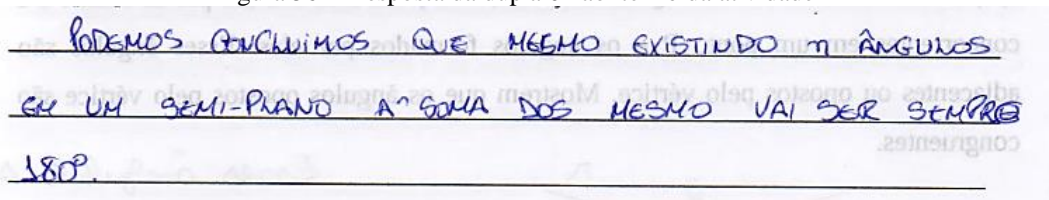 PODEMOS CONCLUIMOS QUE MESMO EXISTINDO n ÂNGULOS
EM UM SEMI-PLANO A SOMA DOS MESMO VAI SER SEMPRE
180º.